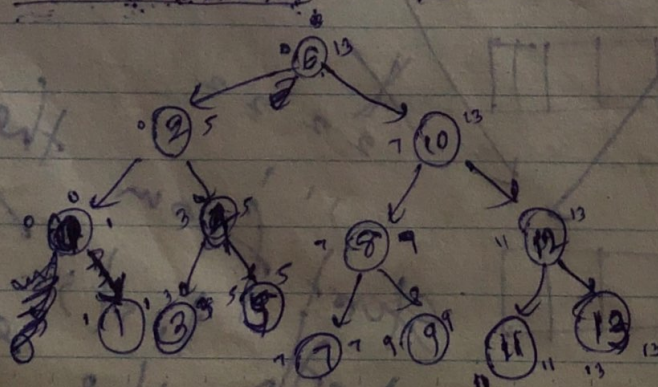 0 6 13
0 2 5
7 10 13
0 0 1
3 4 5
7 8 9
11 12 13
1 1 1
3 3
5 5 5
7 7 7
9 9 9
11 11 11
13 13 13